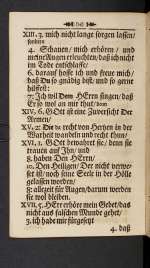 XIII. 3. mich nicht lange sorgen lassen/
sondern
4. Schauen/ mich erhören/ und
meine Augen erleuchten/ daß ich nicht
im Tode entschlaffe;
6. darauf hoffe ich und freue mich/
daß Du so gnädig bist/ und so gerne
hilfest:
7. Ich wil Dem HErrn singen/ daß
Er so wol an mir thut/
XIV. 6. GOtt ist eine Zuversicht Der
Armen/
XV. 2. Die recht von Hertzen in der
Wahrheit wandeln und recht thun/
XVI. 1. GOtt bewahret sie/ denn sie
trauen auf Ihn/ und
8. haben Den HErrn/
10. Den Heiligen/ Der nicht verwe-
set ist/ noch seine Seele in der Hölle
gelassen werden/
8. allezeit für Augen/ darum werden
sie wol bleiben.
XVII. 1. HErr erhöre mein Gebet/ das
nicht aus falschen Munde gehet/
3. ich habe mir fürgesetzt
4. daß